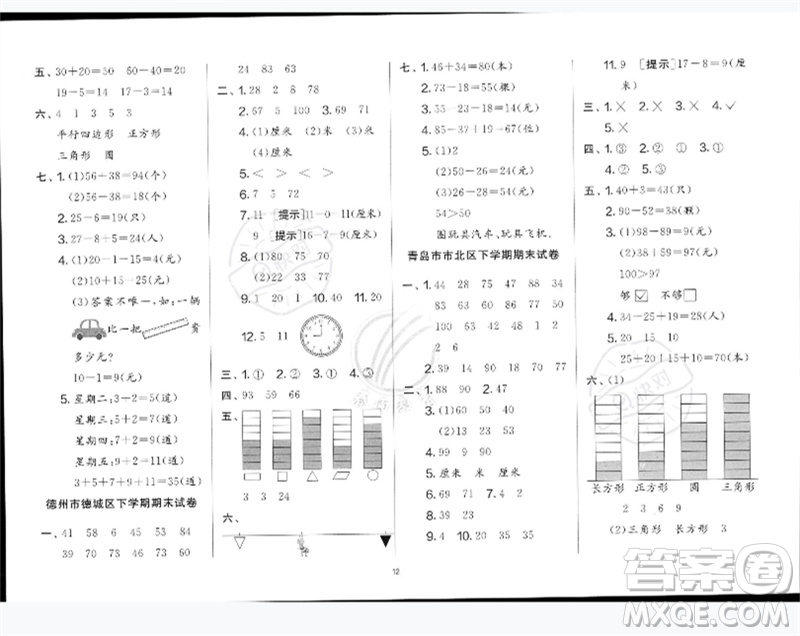 五、30+20=50　60-40=20
19-5=14　17-3=14
六、4　1　3　5　3
平行四边形　正方形
三角形　圆
七、1.(1)56+38=94(个)
(2)56-38=18(个)
2.25-6=19(只)
3.27-8+5=24(人)
4.(1)20-1-15=4(元)
(2)10+15-25(元)
(3)答案不唯一,如:一辆
比一把　贵
多少元?
10-1=9(元)
5.星期二:3+2=5(道)
星期三:5+2=7(道)
星期四:7+2=9(道)
星期五:9+2=11(道)
3+5+7+9+11=35(道)
德州市德城区下学期期末试卷
一、41　58　6　45　53　84
39　70　73　60　56　22
24　83　63
二、1.28　2　8　78
2.67　5　100　3.69　71
4.(1)厘米　(2)米　(3)米
(4)厘米
5.>　<　>　>
6.90　75　72
7.11　[提示]11-0=11(厘米)
9　[提示]16-7=9(厘米)
8.(1)80　75　70
(2)22　44　55
9.1　20　10.40　11.20
12.5　11
三、1.①　2.②　3.①　4.①
四、93　59　66
五、
3　3　24
六、
七、1.46+34=80(本)
2.73-18=55(棵)
3.55-23-18=14(元)
4.85-37+19=67(位)
5.(1)2
(2)50-26=24(元)
(3)26+28=54(元)
54>50
圈玩具汽车、玩具飞机。
青岛市市北区下学期期末试卷
一、1.44　27　75　47　88　34
83　63　60　86　7　57
100　33　64　48　1　2
2　6
2.28　90　15　18　10　77
二、1.88　90　2.47
3.(1)60　50
(2)13　12　11
4.99　90　9
5.厘米　米　厘米
6.39　50
7.>　<　>　=
8.39　23
9.4　10.20　35　35
11.9　[提示]17-8=9(厘
米)
三、1.×　2.×　3.×　4.✓
5.×
四、1.③　2.②　3.①　4.②
五、1.40+3=43(只)
2.90-52=38(颗)
3.(1)98-89=9(元)
(2)38+59=97(元)
100>97
够☑　不够☐
4.34-25+19=28(人)
5.20　15　10
25+20+15+10=70(本)
六、(1)
长方形　正方形　圆　三角形
2　3　6　9
(2)三角形　长方形　3
12
答案圈
MXQE.COM